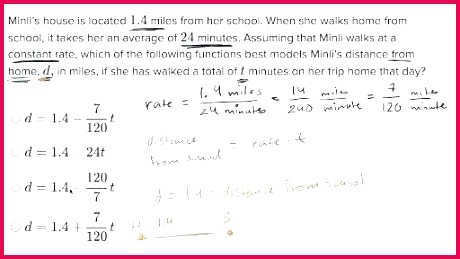 Minli's house is located 1.4 miles from her school. When she walks home from
school, it takes her an average of 24 minutes. Assuming that Minli walks at a
constant rate, which of the following functions best models Minli's distance from
home, d, in miles, if she has walked a total of t minutes on her trip home that day?
rate = 1.4 miles / 24 minutes = 14 mile / 240 minute = 7 mile / 120 minute
d = 1.4 - 7/120 t
distance from school = rate · t
d = 1.4 24t
d = 1.4 120/7 t
d = 1.4 - distance from school
d = 1.4 + 7/120 t
H 1.4 S